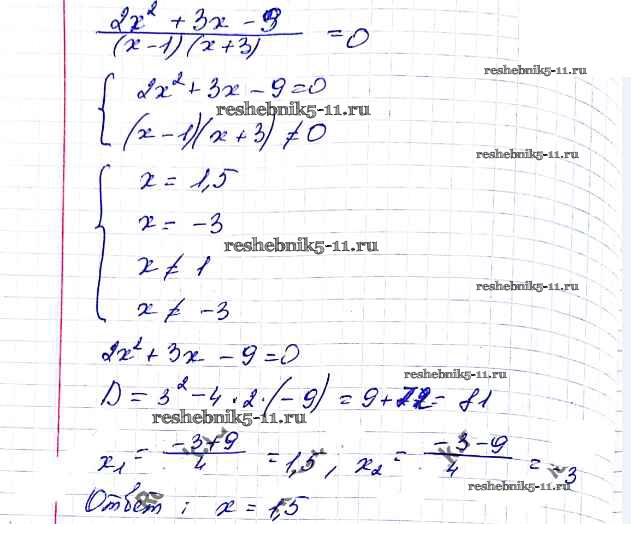 2x² + 3x - 9
(x-1)(x+3) = 0
reshebnik5-11.ru
2x² + 3x - 9 = 0
reshebnik5-11.ru
(x-1)(x+3) ≠ 0
reshebnik5-11.ru
x = 1,5
x = -3
reshebnik5-11.ru
x ≠ 1
reshebnik5-11.ru
x ≠ -3
2x² + 3x - 9 = 0
reshebnik5-11.ru
D = 3² - 4·2·(-9) = 9+72 = 81
reshebnik5-11.ru
x₁ = (-3+9)/4 = 1,5; x₂ = (-3-9)/4 = -3
reshebnik5-11.ru
Ответ: x = 1,5